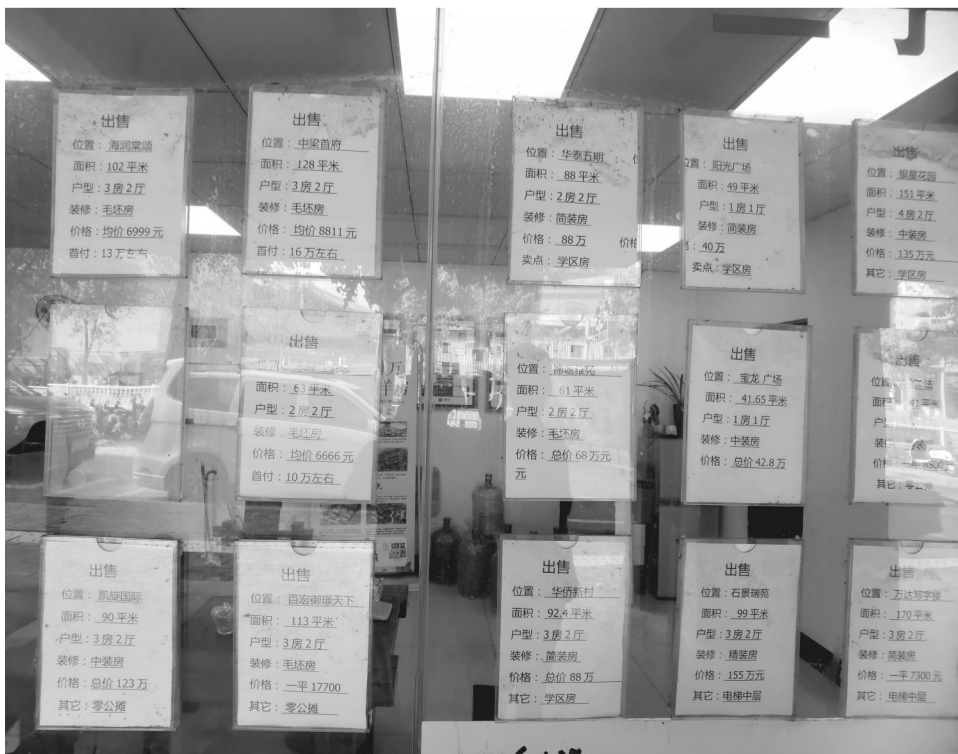 出售
位置：海润棠颂
面积：102 平米
户型：3 房 2 厅
装修：毛坯房
价格：均价 6999 元
首付：13 万左右
出售
位置： 中梁首府
面积：128 平米
户型：3 房 2 厅
装修：毛坯房
价格： 均价 8811 元
首付：16 万左右
出售
位置： 华泰五期
面积： 88 平米
户型：2 房 2 厅
装修：简装房
价格： 88 万
出售
阳光广场
面积：49 平米
户型：1 房 1 厅
装修：简装房
40 万
卖点：学区房
出售
位置： 银星花园
面积：151 平米
户型：4 房 2 厅
装修： 中装房
价格：135 万元
其它： 学区房
出售
面积： 63 平米
户型：2 房 2 厅
装修：毛坯房
价格： 均价 6666 元
首付：10 万左右
出售
位置：
面积： 61 平米
户型：2 房 2 厅
装修：毛坯房
价格： 总价 68 万元
元
出售
位置： 宝龙 广场
面积： 41.65 平米
户型：1 房 1 厅
装修：中装房
价格：总价 42.8 万
出售
面积： 41 平米
其它：零公摊
出售
位置： 凯旋国际
面积： 90 平米
户型：3 房 2 厅
装修：中装房
价格：总价 123 万
其它：零公摊
出售
位置： 百宏御璟天下
面积： 113 平米
户型：3 房 2 厅
装修：毛坯房
价格： 一平 17700
其它： 零公摊
出售
位置： 华侨新村
面积： 92.4 平米
户型：3 房 2 厅
装修：简装房
价格： 总价 88 万
其它： 学区房
出售
位置：石景瑞苑
面积： 99 平米
户型：3 房 2 厅
装修：精装房
价格： 155 万元
其它：电梯中层
出售
位置： 万达写字楼
面积：170 平米
户型：3 房 2 厅
装修：简装房
价格：一平 7300 元
其它： 电梯中层